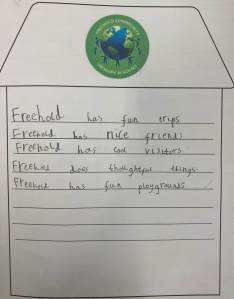 FREEHOLD COMMUNITY
PRIMARY ACADEMY
Freehold has fun trips
Freehold has nice friends
Freehold has cool visitors
Freehold does thoughtful things.
Freehold has fun playgrounds